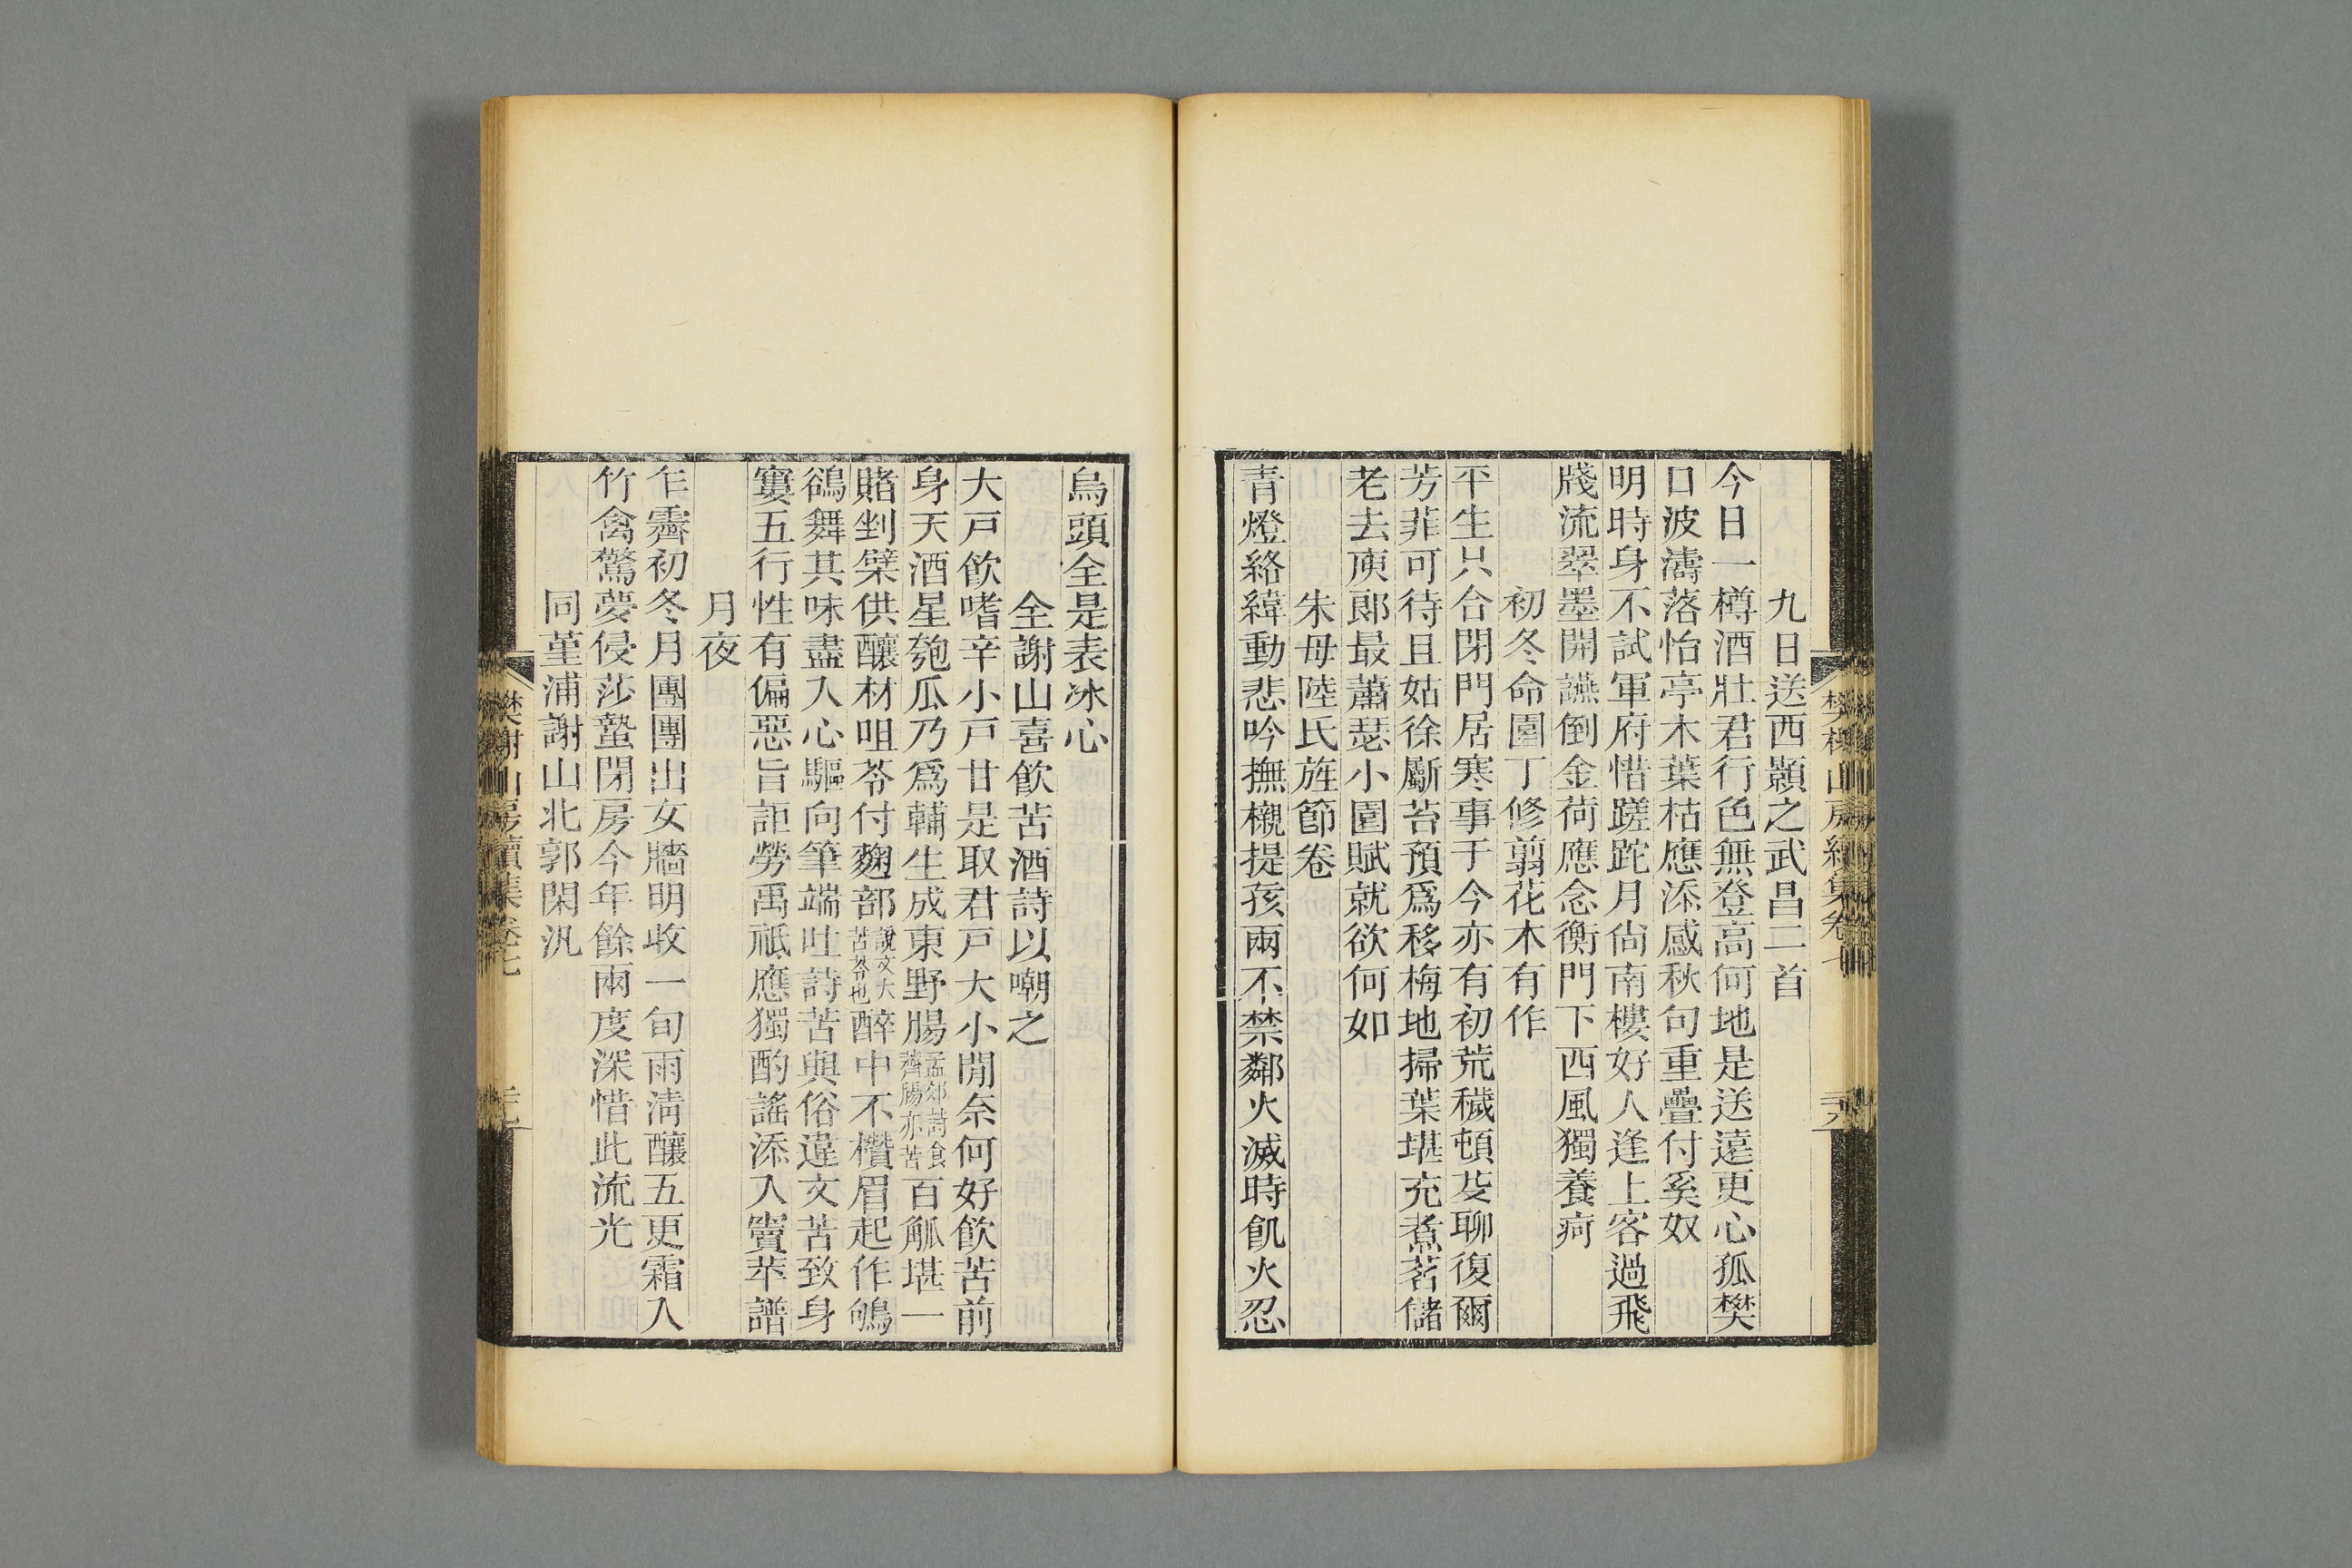 九日送西顥之武昌二首
今日一樽酒壯君行色無登高何地是送遠更心孤樊
口波濤落怡亭木葉枯應添感秋句重疊付奚奴
明時身不試軍府惜蹉跎月尙南樓好人逢上客過飛
牋流翠墨開讌倒金荷應念衡門下西風獨養疴
初冬命園丁修翦花木有作
平生只合閉門居寒事于今亦有初荒穢頓芟聊復爾
芳菲可待且姑徐斸苔預爲移梅地掃葉堪充煮茗儲
老去庾郞最蕭瑟小園賦就欲何如
朱母陸氏旌節卷
青燈絡緯動悲吟撫櫬提孩兩不禁鄰火滅時飢火忍
烏頭全是表冰心
全謝山喜飮苦酒詩以嘲之
大戸飮嗜辛小戸甘是取君戸大小閒奈何好飮苦前
身天酒星匏瓜乃爲輔生成東野腸孟郊詩食薺腸亦苦百觚堪一
賭剉檗供釀材咀苓付麴部說文大苦苓也醉中不攢眉起作鴝
鵒舞其味盡入心驅向筆端吐詩苦與俗違文苦致身
窶五行性有偏惡旨詎勞禹祗應獨酌謠添入竇苹譜
月夜
乍霽初冬月團團出女牆明收一旬雨淸釀五更霜入
竹禽驚夢侵莎蟄閉房今年餘兩度深惜此流光
同堇浦謝山北郭閑汎
樊榭山房續集卷七